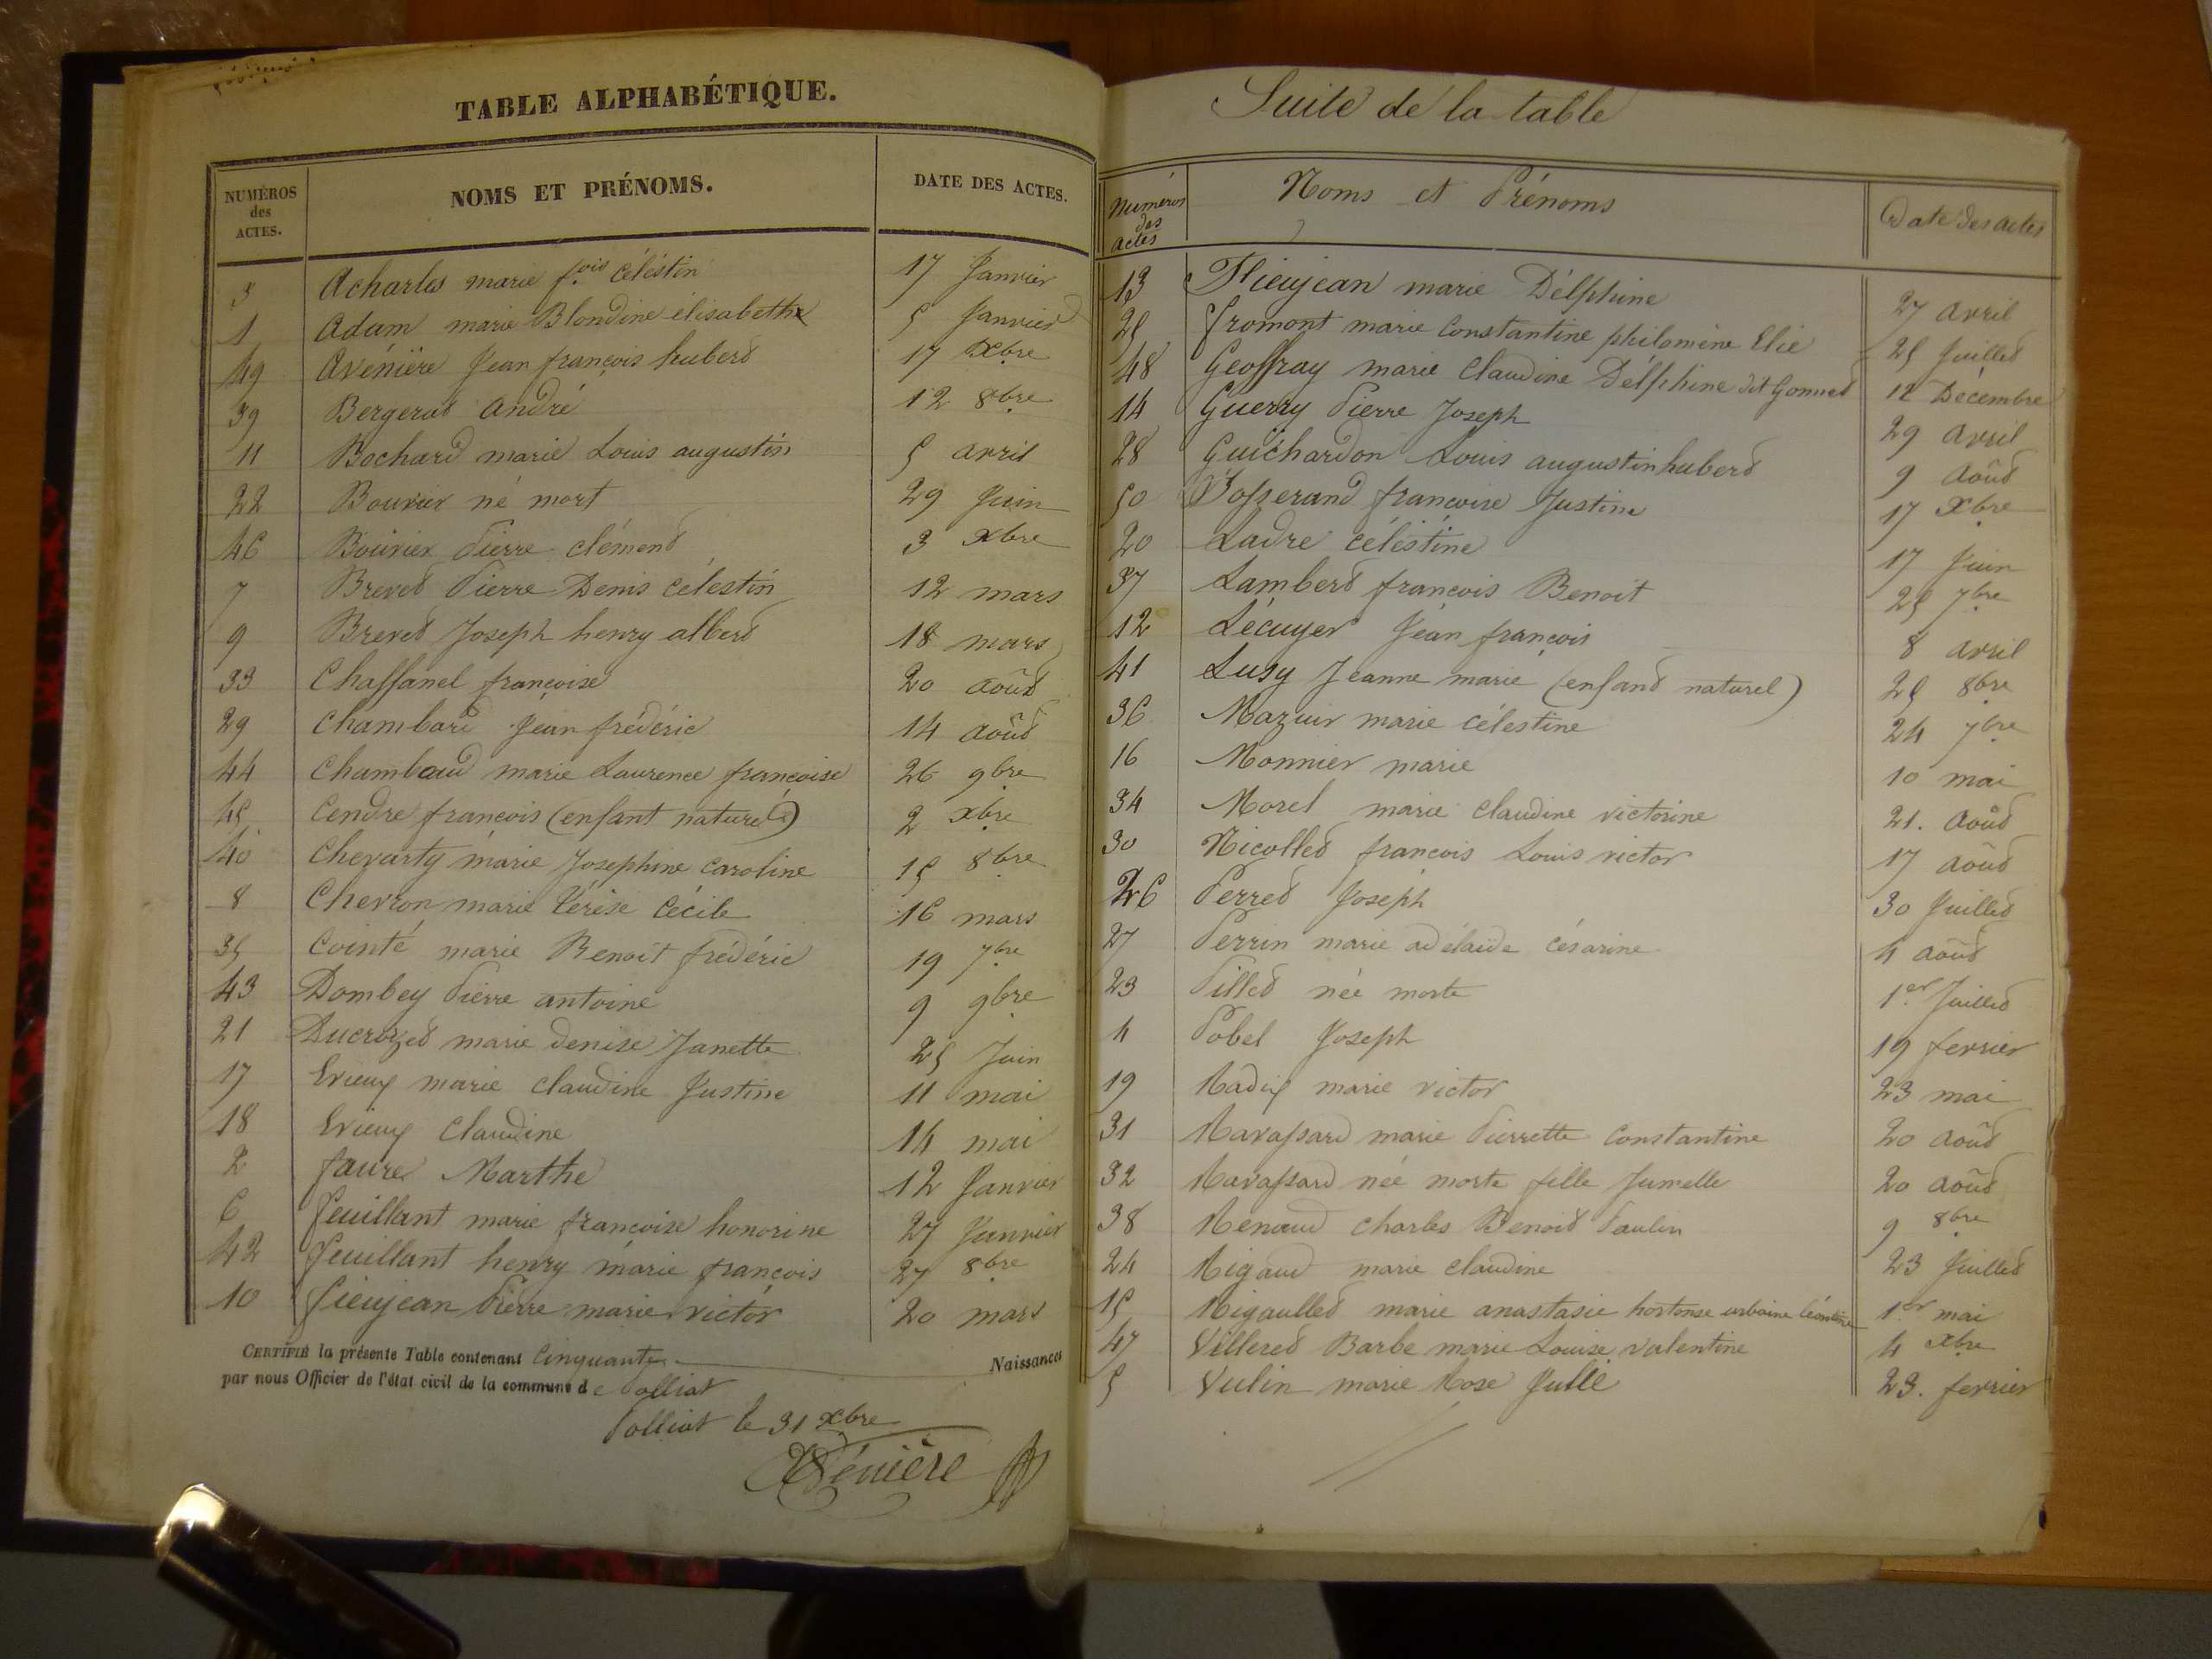 TABLE ALPHABÉTIQUE.
NUMÉROS des ACTES. NOMS ET PRÉNOMS. DATE DES ACTES.
3 Acharles marie f.ois Célestin 17 Janvier
1 Adam marie Blondine élisabeth 5 Janvier
49 Avénière Jean françois hubert 17 Xbre
39 Bergerat André 12 8bre
11 Bochard marie Louis augustin 5 avril
22 Bouvier né mort 29 Juin
46 Bouvier Pierre clément 3 xbre
7 Brevet Pierre Denis célestin 12 mars
9 Brevet Joseph henry albert 18 mars
33 Chaffanel françoise 20 août
29 Chambard Jean frédéric 14 août
44 Chambaud marie Laurence françoise 26 9bre
45 Cendre françois (enfant naturel) 2 xbre
40 Chevarty marie Josephine Caroline 15 8bre
8 Chevron marie Térèse Cécile 16 mars
35 Cointé marie Benoît frédéric 19 7bre
43 Dombey Pierre antoine 9 9bre
21 Ducrozet marie denise Janette 25 Juin
17 Erieux marie claudine Justine 11 mai
18 Erieux Claudine 14 mai
2 faure Marthe 12 Janvier
6 Feuillant marie françoise honorine 27 Janvier
42 Feuillant henry marie françois 27 8bre
10 fieujean Pierre marie victor 20 mars
CERTIFIÉ la présente Table contenant Cinquante Naissances
par nous Officier de l'état civil de la commune de Polliat
Polliat le 31 xbre
Avénière
Suite de la table
Numéros des actes Noms et Prénoms Date des actes
13 Flieujean marie Délphine 27 avril
25 fromont marie Constantine philomène Elie 25 Juillet
48 Geoffray marie Claudine Délphine dit Gonnet 12 Décembre
14 Guerry Pierre Joseph 29 avril
28 Guichardon Louis augustin hubert 9 août
50 Josserand françoise Justine 17 Xbre
20 Ladre céléstine 17 Juin
37 Lambert françois Benoit 25 7bre
12 Lécuyer Jean françois 8 avril
41 Lusy Jeanne marie (enfant naturel) 25 8bre
36 Mazuir marie célestine 24 7bre
16 Monnier marie 10 mai
34 Morel marie claudine victorine 21. août
30 Nicollet françois Louis victor 17 août
26 Perret Joseph 30 Juillet
27 Perrin marie adélaïde césarine 4 août
23 Pillet née morte 1er Juillet
4 Pobel Joseph 19 fevrier
19 Radix marie victor 23 mai
31 Ravassard marie Pierrette Constantine 20 août
32 Ravassard née morte fille Jumelle 20 août
38 Renaud charles Benoit Paulin 9 8bre
24 Rigaud marie claudine 23 Juillet
15 Rigaullet marie anastasie hortense urbaine léontine 1er mai
47 Villeret Barbe marie Louise valentine 4 xbre
5 Vulin marie Rose Julie 23. fevrier